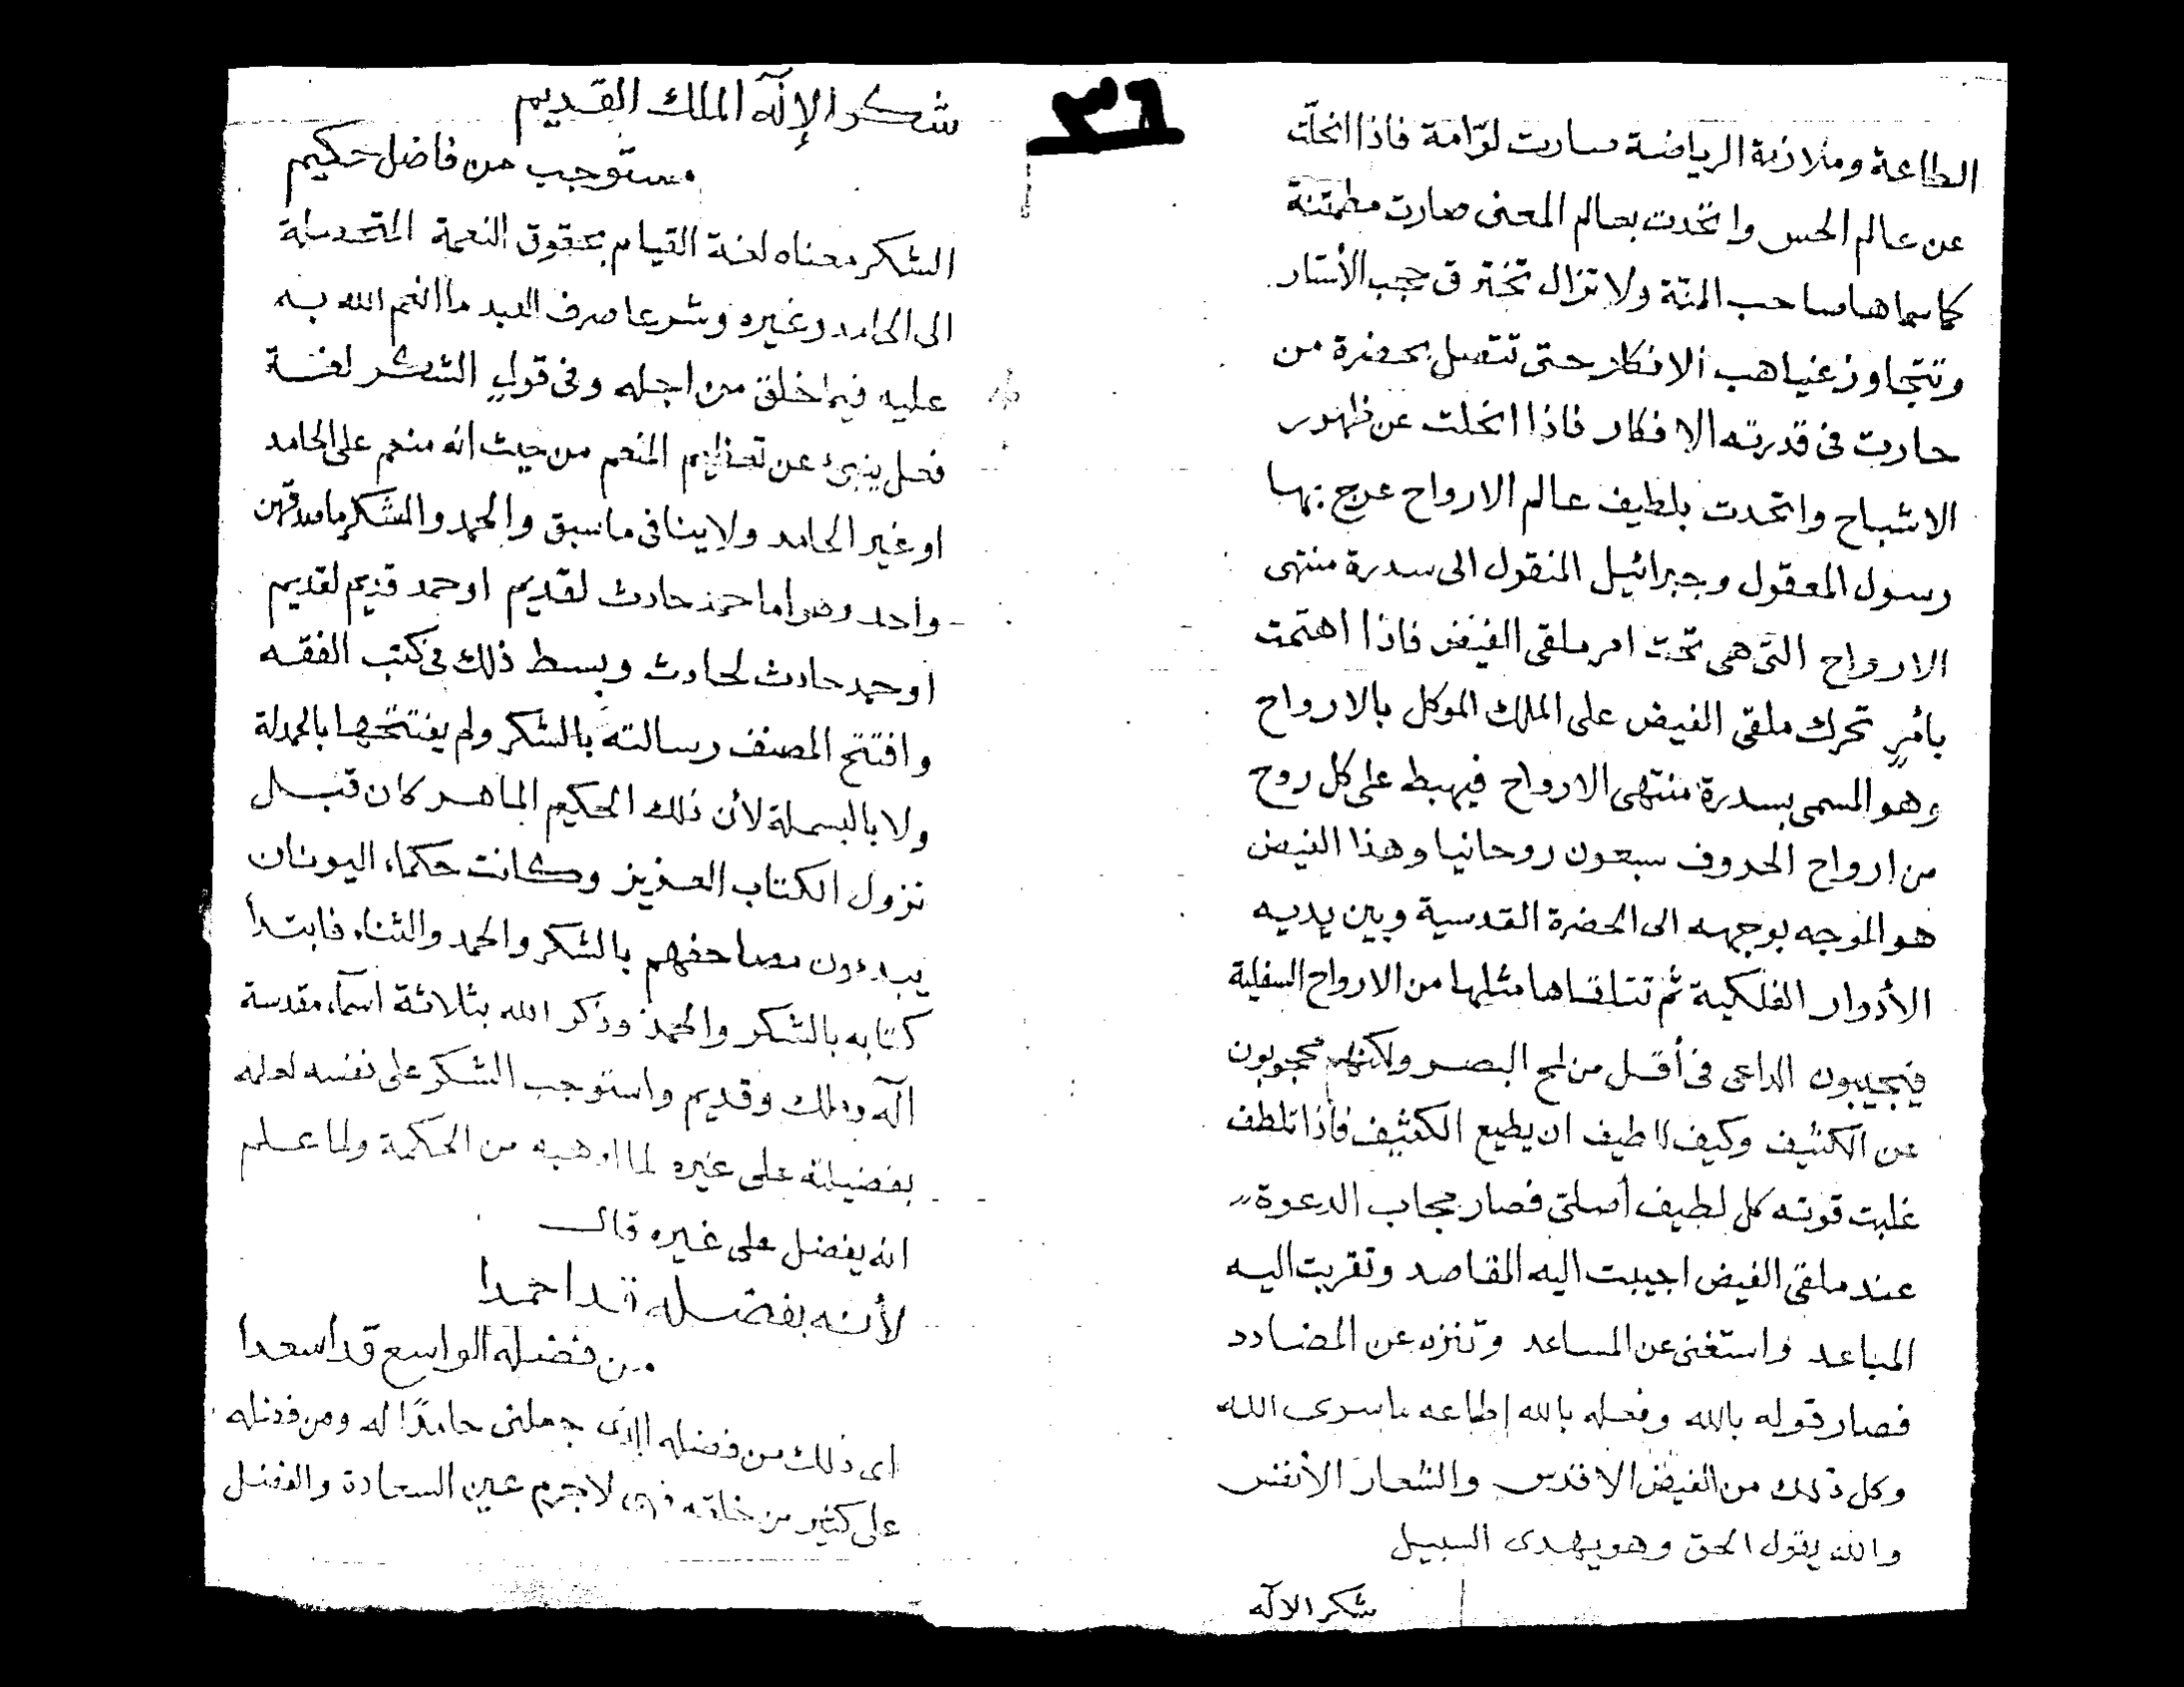 الطاعة وملازمة الرياضة صارت لوّامة فاذا انحلّت
عن عالم الحس واتحدت بعالم المعنى صارت مطمئنة
كما سماها صاحب المنّة ولا تزال تخترق حجب الأستار
وتتجاوز غياهب الافكار حتى تتصل بحضرة من
حارت فى قدرته الافكار فاذا انخلت عن ظهور
الاشباح واتحدت بلطيف عالم الارواح عرج بها
رسول المعقول وجبرائيل المنقول الى سدرة منتهى
الارواح التى هى تحت امر ملقى الفيض فاذا اهتمت
بأمرٍ تحرك ملقى الفيض على الملك الموكل بالارواح
وهو المسمى بسدرة منتهى الارواح فيهبط على كل روح
من ارواح الحروف سبعون روحانيا وهذا الفيض
هو الموجه بوجهه الى الحضرة القدسية وبين يديه
الأدوار الفلكية ثم تتلقاها مثلها من الارواح السفلية
فيجيبون الداعى فى أقل من لمح البصر ولكنهم محجوبون
عن الكثيف وكيف لاطيف ان يطيع الكثيف فاذا تلطف
غلبت قوته كل لطيف أصلى فصار مجاب الدعوة
عند ملقى الفيض اجيبت اليه المقاصد وتقربت اليه
المباعد واستغنى عن المساعد وتنزه عن المضادد
فصار قوله بالله وفعله بالله إطاعه ماسوى الله
وكل ذلك من الفيض الاقدس والشعار الأنفس
والله يقول الحق وهو يهدى السبيل
شكر الاله
٣٦
شكر الإلٓه الملك القديم
مستوجب من فاضل حكيم
الشكر معناه لغة القيام بحقوق النعمة المتحصلة
الى الحامد وغيره وشرعا صرف العبد ما انعم الله به
عليه فيما خلق من اجله وفى قولٍ الشكر لغة
فعل ينبئ عن تعظيم المنعم من حيث انه منعم على الحامد
او غير الحامد ولا ينافى ما سبق والحمد والشكر ماصدقهن
واحد وهو اما حمد حادث لقديم او حمد قديم لقديم
او حمد حادث لحادث وبسط ذلك فى كتب الفقه
وافتتح المصنف رسالته بالشكر ولم يفتتحها بالحمدلة
ولا بالبسملة لأن ذلك الحكيم الماهر كان قبل
نزول الكتاب العزيز وكانت حكماء اليونان
يبدءون مصاحفهم بالشكر والحمد والثناء فابتدأ
كتابه بالشكر والحمد وذكر الله بثلاثة اسمآء مقدسة
آله وملك وقديم واستوجب الشكر على نفسه لعلمه
بفضيلته على غيره لما اوهبه من الحكمة ولما علم
انه يفضل على غيره قال
لأنه بفضله قد احمدا
من فضله الواسع قد اسعدا
اى ذلك من فضله الذى جعلنى حامدًا له ومن فضله
على كثير من خلقه فهى لا جرم عين السعادة والفضل